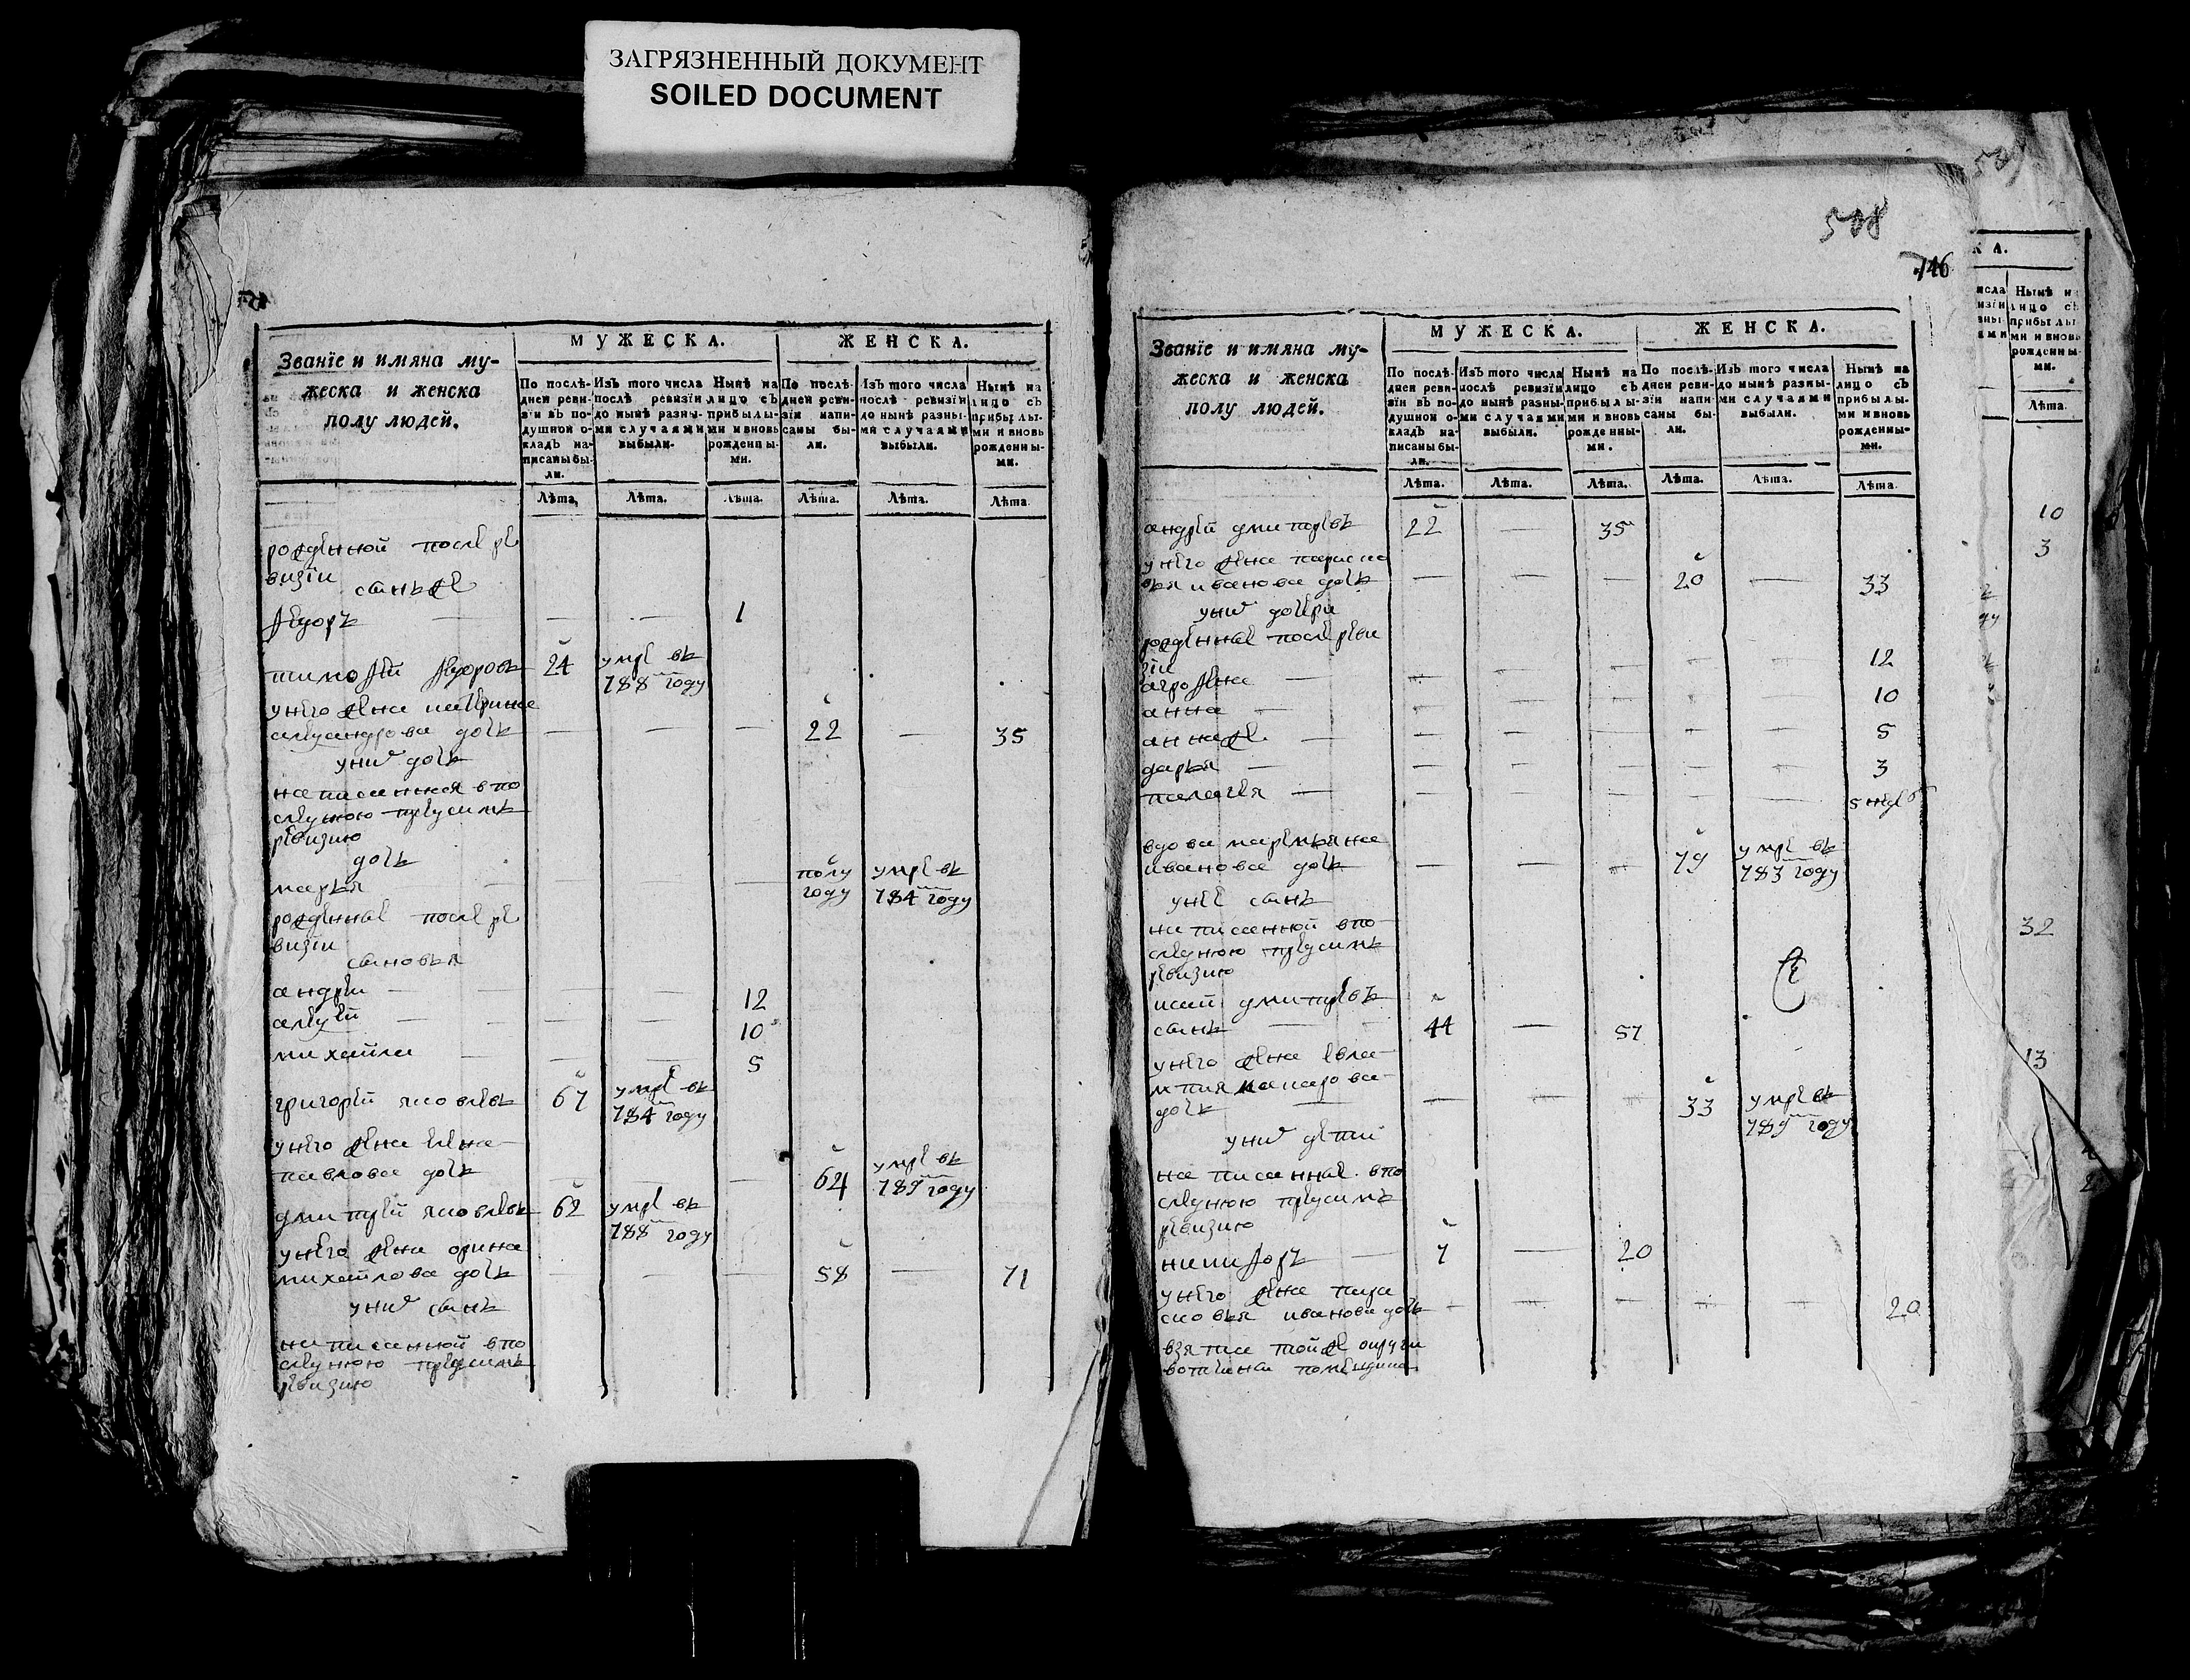 ЗАГРЯЗНЕННЫЙ ДОКУМЕНТ
SOILED DOCUMENT
Званїе и имяна му-
жеска и женска
полу людей.
МУЖЕСКА.
ЖЕНСКА.
По послѣ-
дней реви-
зїи въ по-
душной о-
кладъ на-
писаны бы-
ли.
Изъ того числа
послѣ ревизїи
до нынѣ разны-
ми случаями
выбыли.
Нынѣ на
лицо съ
прибылы-
ми и вновь
рожденны-
ми.
По послѣ-
дней реви-
зїи напи-
саны бы-
ли.
Изъ того числа
послѣ ревизїи
до нынѣ разны-
ми случаями
выбыли.
Нынѣ на
лицо съ
прибылы-
ми и вновь
рожденны-
ми.
Лѣта. Лѣта. Лѣта. Лѣта. Лѣта. Лѣта.
рожденной после ре
визїи
сынъ же
федоръ — — — 1
тимофей федоровъ 24 умре въ
788 году
у него жена катерина
александрова дочь — — — 22 — 35
у них дочь
написанная в по
следнюю пред симъ
ревизию
дочь
марья — полу умре въ
году 784 году
рожденные после ре
визїи
сыновья
андреи — — — 12
алексей — — — 10
михаила — — — 5
григорей яковлевъ 67 умре въ
784 году
у него жена елена
павлова дочь — 64 умре въ
789 году
дмитрей яковлевъ 62 умре въ
788 году
у него жена орина
михайлова дочь — — — 58 — 71
у них сынъ
написанной в по
следнюю пред симъ
ревизию
508
746
Званїе и имяна му-
жеска и женска
полу людей.
МУЖЕСКА.
ЖЕНСКА.
По послѣ-
дней реви-
зїи въ по-
душной о-
кладъ на-
писаны бы-
ли.
Изъ того числа
послѣ ревизїи
до нынѣ разны-
ми случаями
выбыли.
Нынѣ на
лицо съ
прибылы-
ми и вновь
рожденны-
ми.
По послѣ-
дней реви-
зїи напи-
саны бы-
ли.
Изъ того числа
до нынѣ разны-
ми случаями
выбыли.
Нынѣ на
лицо съ
прибылы-
ми и вновь
рожденны-
ми.
Лѣта. Лѣта. Лѣта. Лѣта. Лѣта. Лѣта.
андрей дмитревъ 22 — 35
у него жена параско
вья иванова дочь — — — 20 — 33
у них дочери
рожденные после реви
зїи
агрофена — — — — — — 12
анна — — — — — — 10
анна же — — — — — — 5
дарья — — — — — — 3
палагея — — — — — — 5 недель
вдова маремьяна
иванова дочь — — — 79 умре въ
783 году
у нее сынъ
написанной в по
следнюю пред симъ
ревизию
исай дмитревъ
сынъ — 44 — 57
у него жена евла
мпия макарова
дочь — — — — 33 умре въ
789 году
у них дети
написанные в по
следнюю пред симъ
ревизию
никифоръ — 7 — 20
у него жена пара
сковья иванова дочь — — — — — 20
взята той же округи
вотчины помещика
КА.
Нынѣ на
лицо съ
прибылы-
ми и вновь
рожденны-
ми.
Лѣта.
10
3
32
13